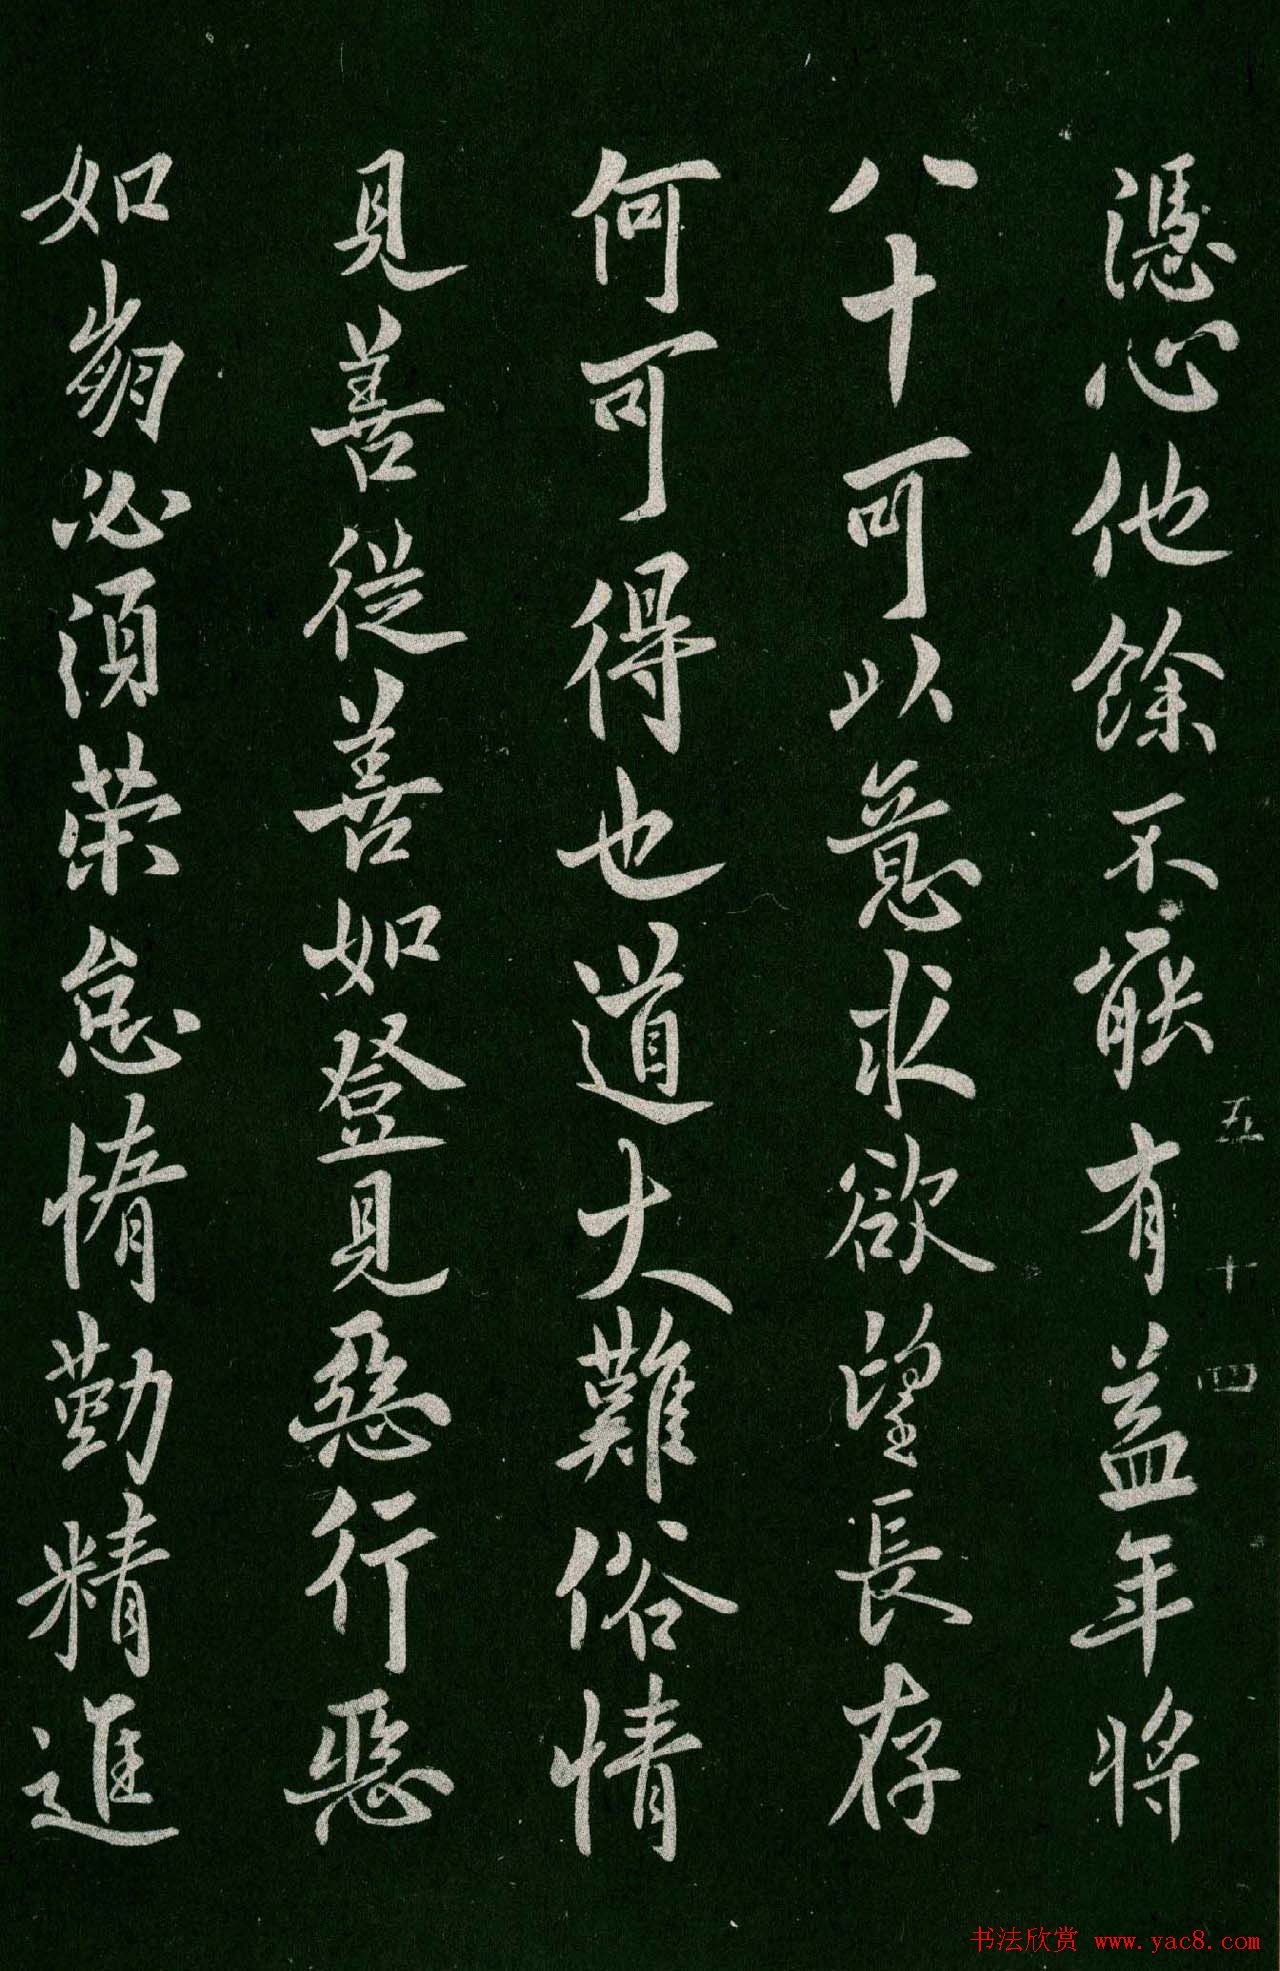 憑心他餘不能有益年將
八十可以意求欲望長存
何可可得也道大難俗情
見善從善如登見惡行惡
如崩必須榮怠惰勤精進
五十四
书法欣赏 www.yac8.com